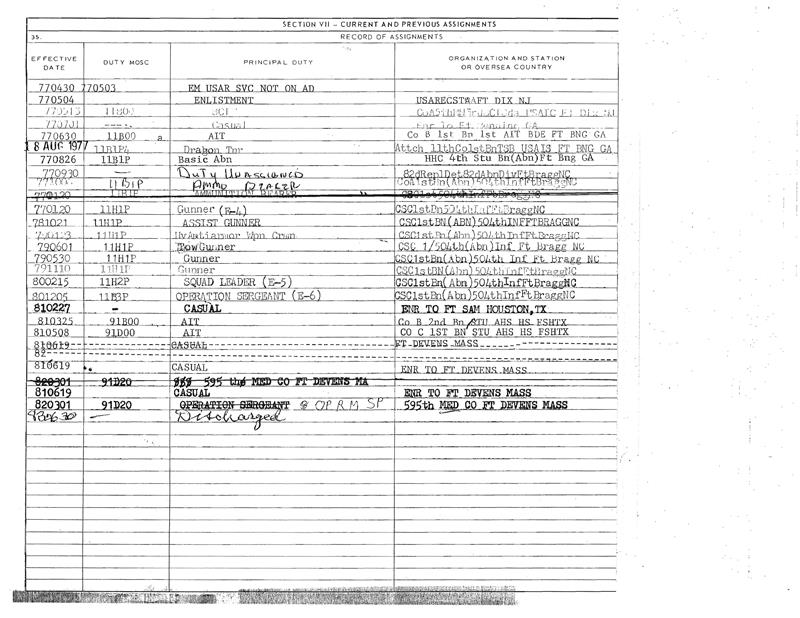 SECTION VII - CURRENT AND PREVIOUS ASSIGNMENTS
35. RECORD OF ASSIGNMENTS
EFFECTIVE DATE DUTY MOSC PRINCIPAL DUTY ORGANIZATION AND STATION OR OVERSEA COUNTRY
770430 770503 EM USAR SVC NOT ON AD
770504 ENLISTMENT USARECSTA FT DIX NJ
770701 ---- Casual
770630 11B00 a AIT Co B 1st Bn 1st AIT BDE FT BNG GA
18 AUG 1977 11B1P4 Dragon Tnr Attch 11thCo1stBnTSB USAIS FT BNG GA
770826 11B1P Basic Abn HHC 4th Stu Bn(Abn)Ft Bng GA
770930 DUTY UNASSIGNED 82dReplDet82dAbnDivFtBraggNC
11B1P AMMO BEARER Co A1stBn(Abn)504thInfFtBraggNC
770120 11B1P AMMUNITION BEARER CSC1st504thInfFtBraggNC
770120 11H1P Gunner (E-4) CSC1stBn504thInfFtBraggNC
781021 11H1P ASSIST GUNNER CSC1stBN(ABN)504thINFFTBRAGGNC
11H1P HvAntiarmor Wpn Crmn CSC1stBn(Abn)504thInfFtBraggNC
790601 11H1P TowGunner CSC 1/504th(Abn)Inf Ft Bragg NC
790530 11H1P Gunner CSC1stBn(Abn)504th Inf Ft Bragg NC
791110 11H1P Gunner CSC1stBN(Abn)504thInfFtBraggNC
800215 11H2P SQUAD LEADER (E-5) CSC1stBn(Abn)504thInfFtBraggNC
801205 11B3P OPERATION SERGEANT (E-6) CSC1stBn(Abn)504thInfFtBraggNC
810227 - CASUAL ENR TO FT SAM HOUSTON,TX
810325 91B00 AIT Co B 2nd Bn STU AHS HS FSHTX
810508 91D00 AIT CO C 1ST BN STU AHS HS FSHTX
810619 CASUAL FT DEVENS MASS
82
810619 CASUAL ENR TO FT DEVENS MASS
820301 91D20 595 the MED CO FT DEVENS MA
810619 CASUAL ENR TO FT DEVENS MASS
820301 91D20 OPERATION SERGEANT OP RM SP 595th MED CO FT DEVENS MASS
— Discharged